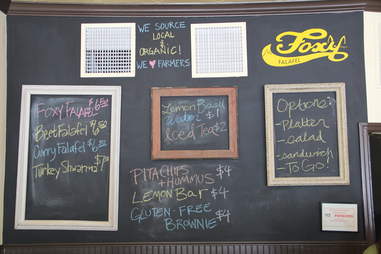 WE SOURCE
LOCAL
&
ORGANIC!
WE ♥ FARMERS
Foxy
FALAFEL
Foxy Falafel $6.50
Beet Falafel $6.50
Curry Falafel $6.50
Turkey Shwarma $7.50
Lemon Basil
Water $1
Iced Tea $2
PITA CHIPS
+ HUMMUS $4
LEMON BAR $4
GLUTEN-FREE
BROWNIE $4
Options:
-Platter
-salad
-sandwich
-To Go!